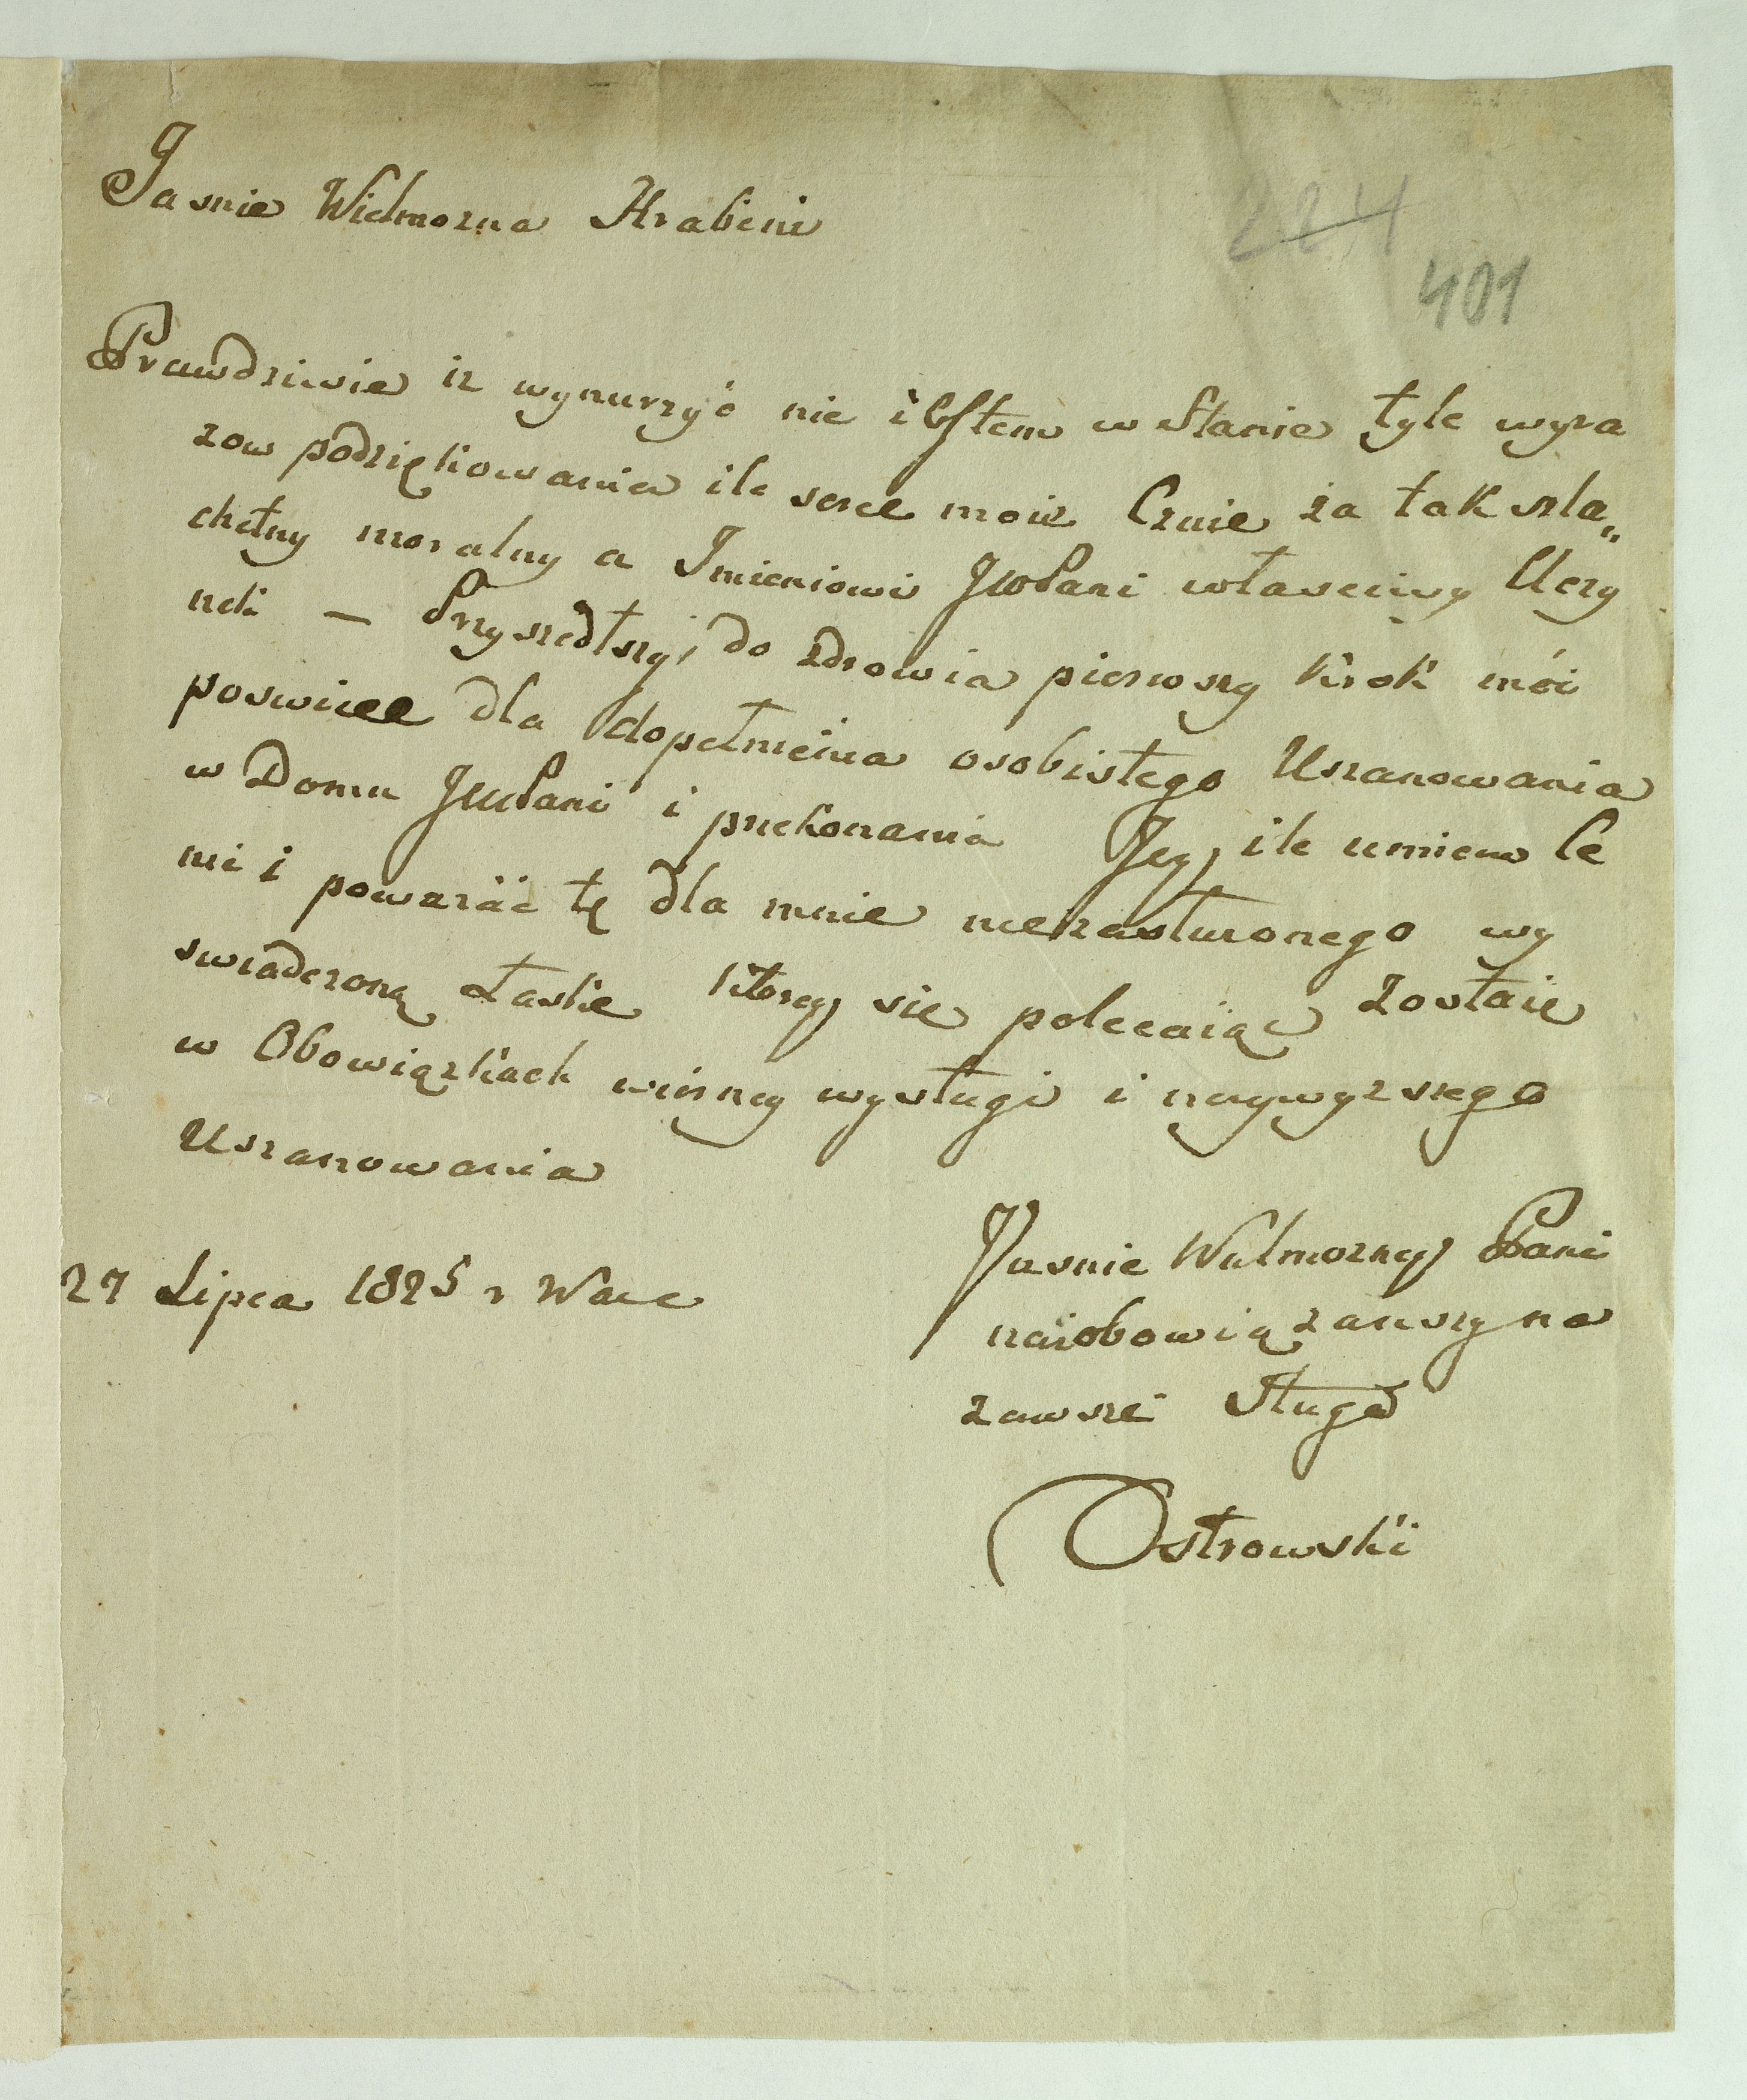 Jasnie Wielmozna Hrabini
224
401
Prawdziwie iz wynurzyć nie iestem w stanie tyle wyra
zow podziękowania ile serce moie Czuie za tak szla„
chetny moralny a Imieniowi JWPani własciwy Uczy
nek — Przyszedłszy do zdrowia pierwszy krok mói
poswiece dla dopełnienia osobistego Uszanowania
w Domu JWPani i przekonania Jey, ile umiem Ce
nić i powazać tę dla mnie niezasłuzonego wy
swiadczoną Łaske którey sie polecaiąc zostaie
w Obowiązkach wierney wysługi i naywyzszego
Uszanowania
Jasnie Wielmozney Pani
27 Lipca 1825 r Warr
naiobowiązanszy na
zawsze Sługa
Ostrowski